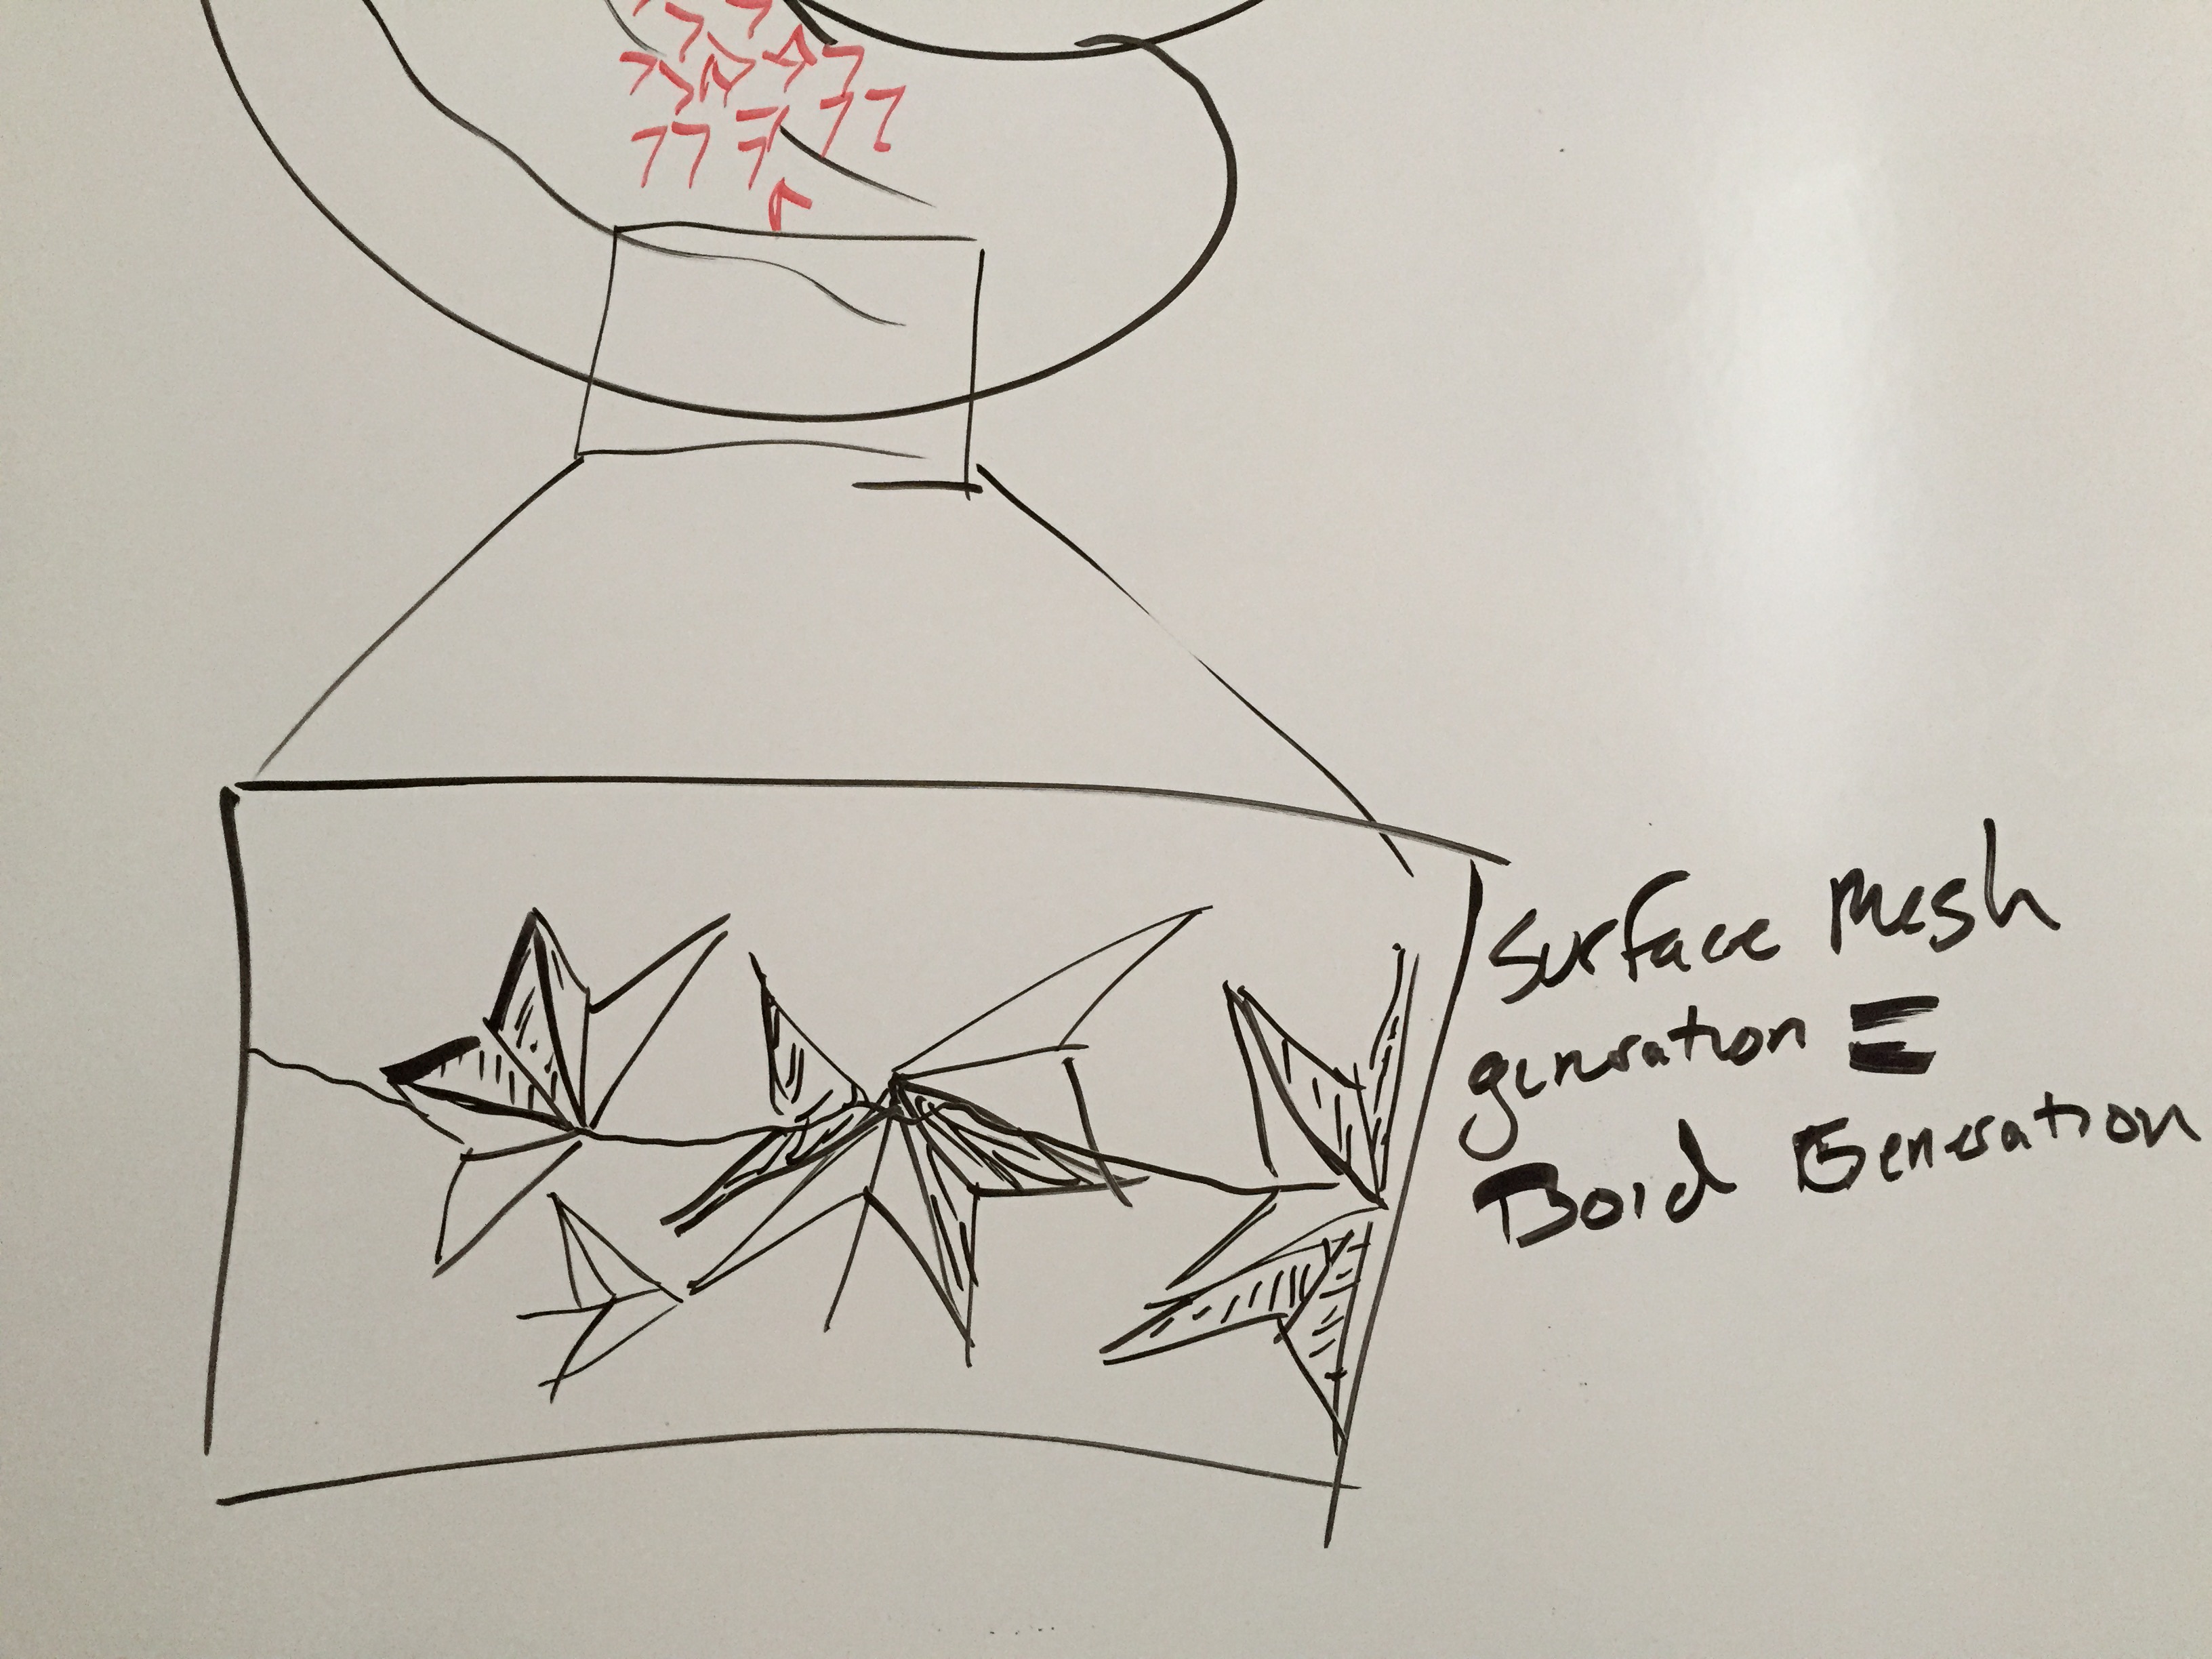 Surface Mesh
generation =
Boid Generation